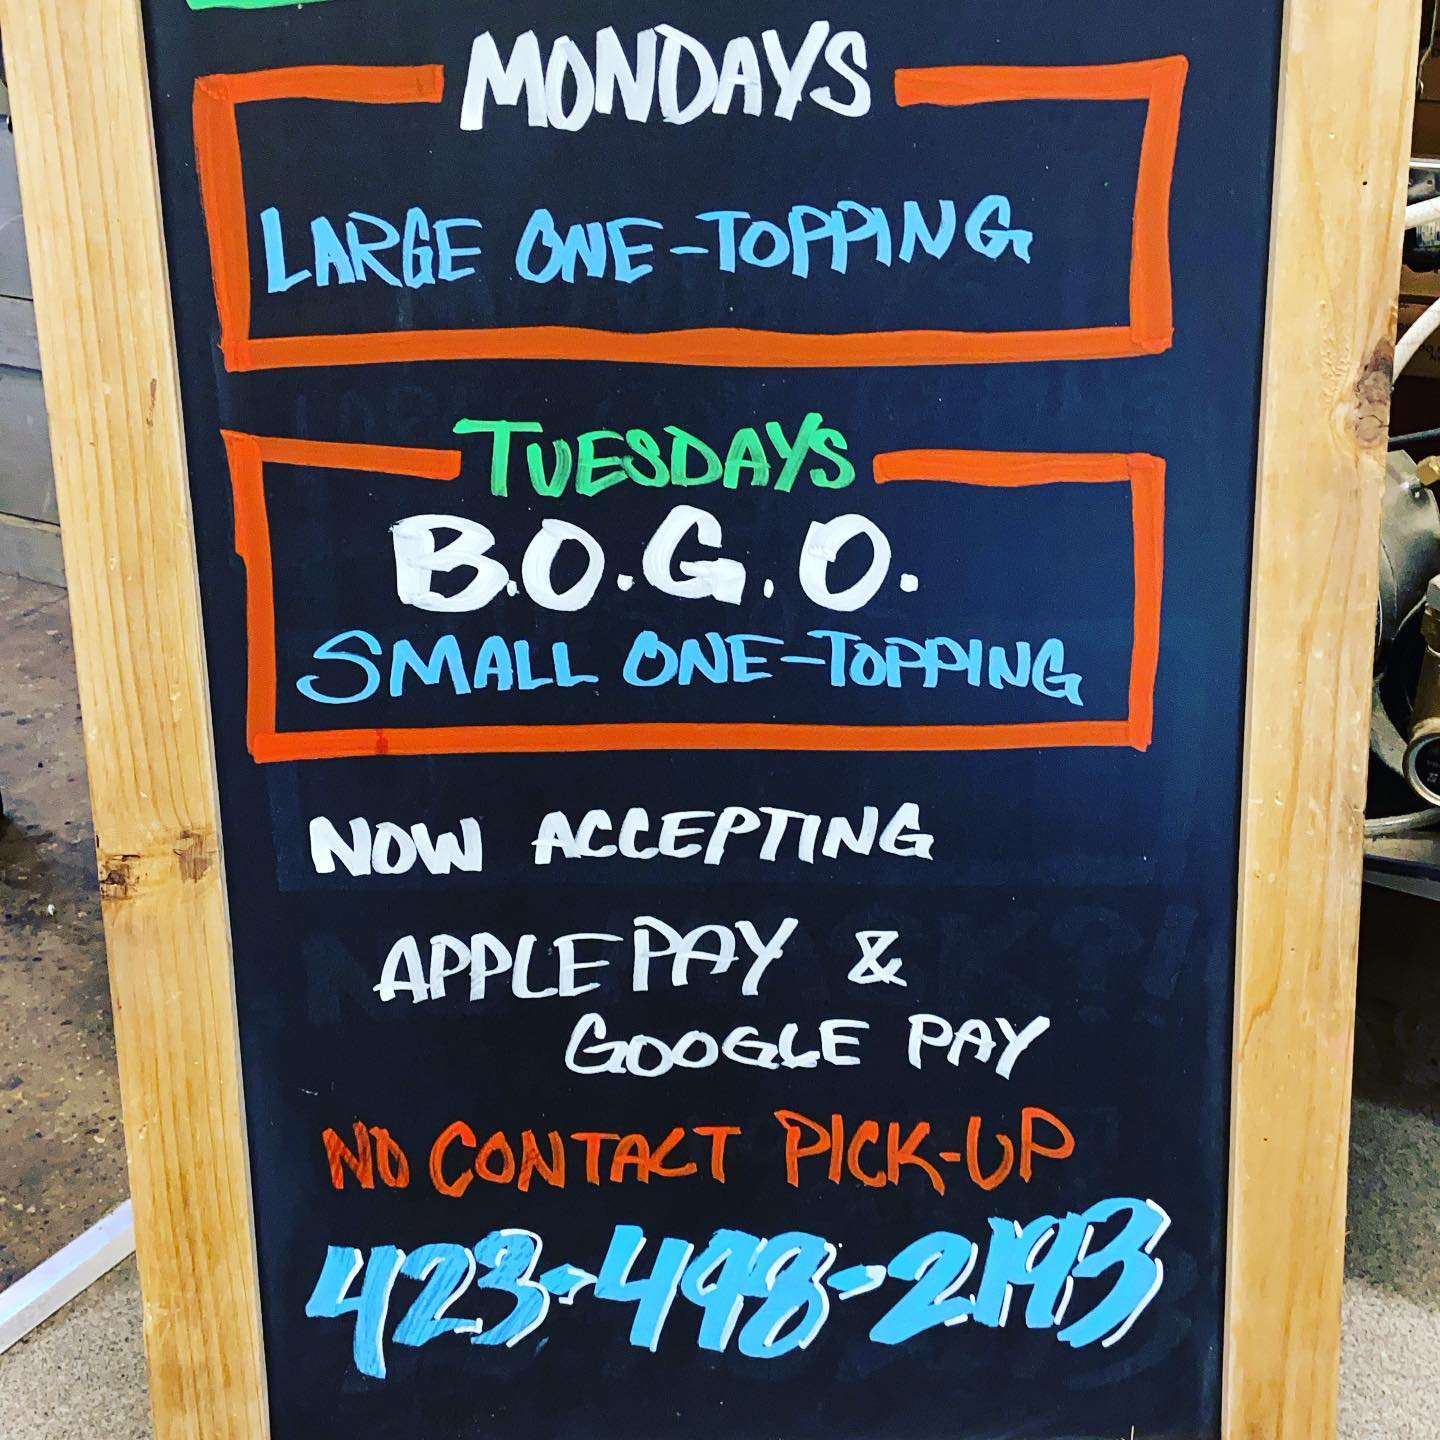 MONDAYS
LARGE ONE-TOPPING
TUESDAYS
B.O.G.O.
SMALL ONE-TOPPING
NOW ACCEPTING
APPLE PAY &
GOOGLE PAY
NO CONTACT PICK-UP
423-498-2193